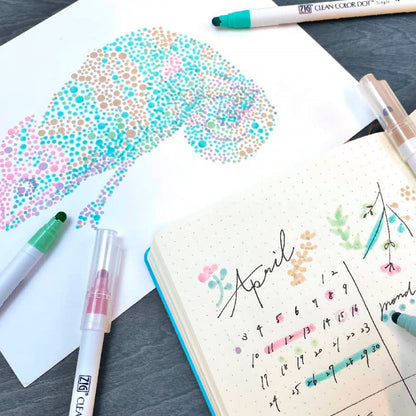 ZIG CLEAN COLOR DOT Single
April
1 2
3 4 5 6 7 8 9
10 11 12 13 14 15 16
17 18 19 20 21 22 23
24 25 26 27 28 29 30
mood
ZIG